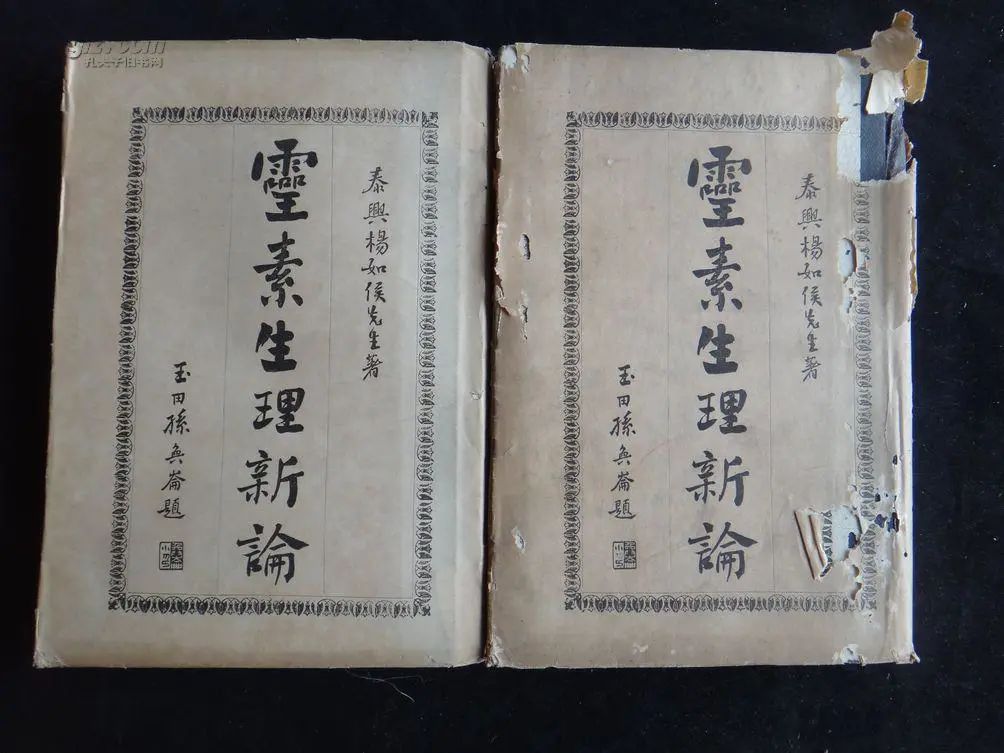 泰興楊如侯先生著
靈素生理新論
玉田孫奐崙題
泰興楊如侯先生著
靈素生理新論
玉田孫奐崙題
孔夫子旧书网